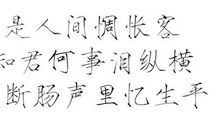 是人间惆怅客
知君何事泪纵横
断肠声里忆生平